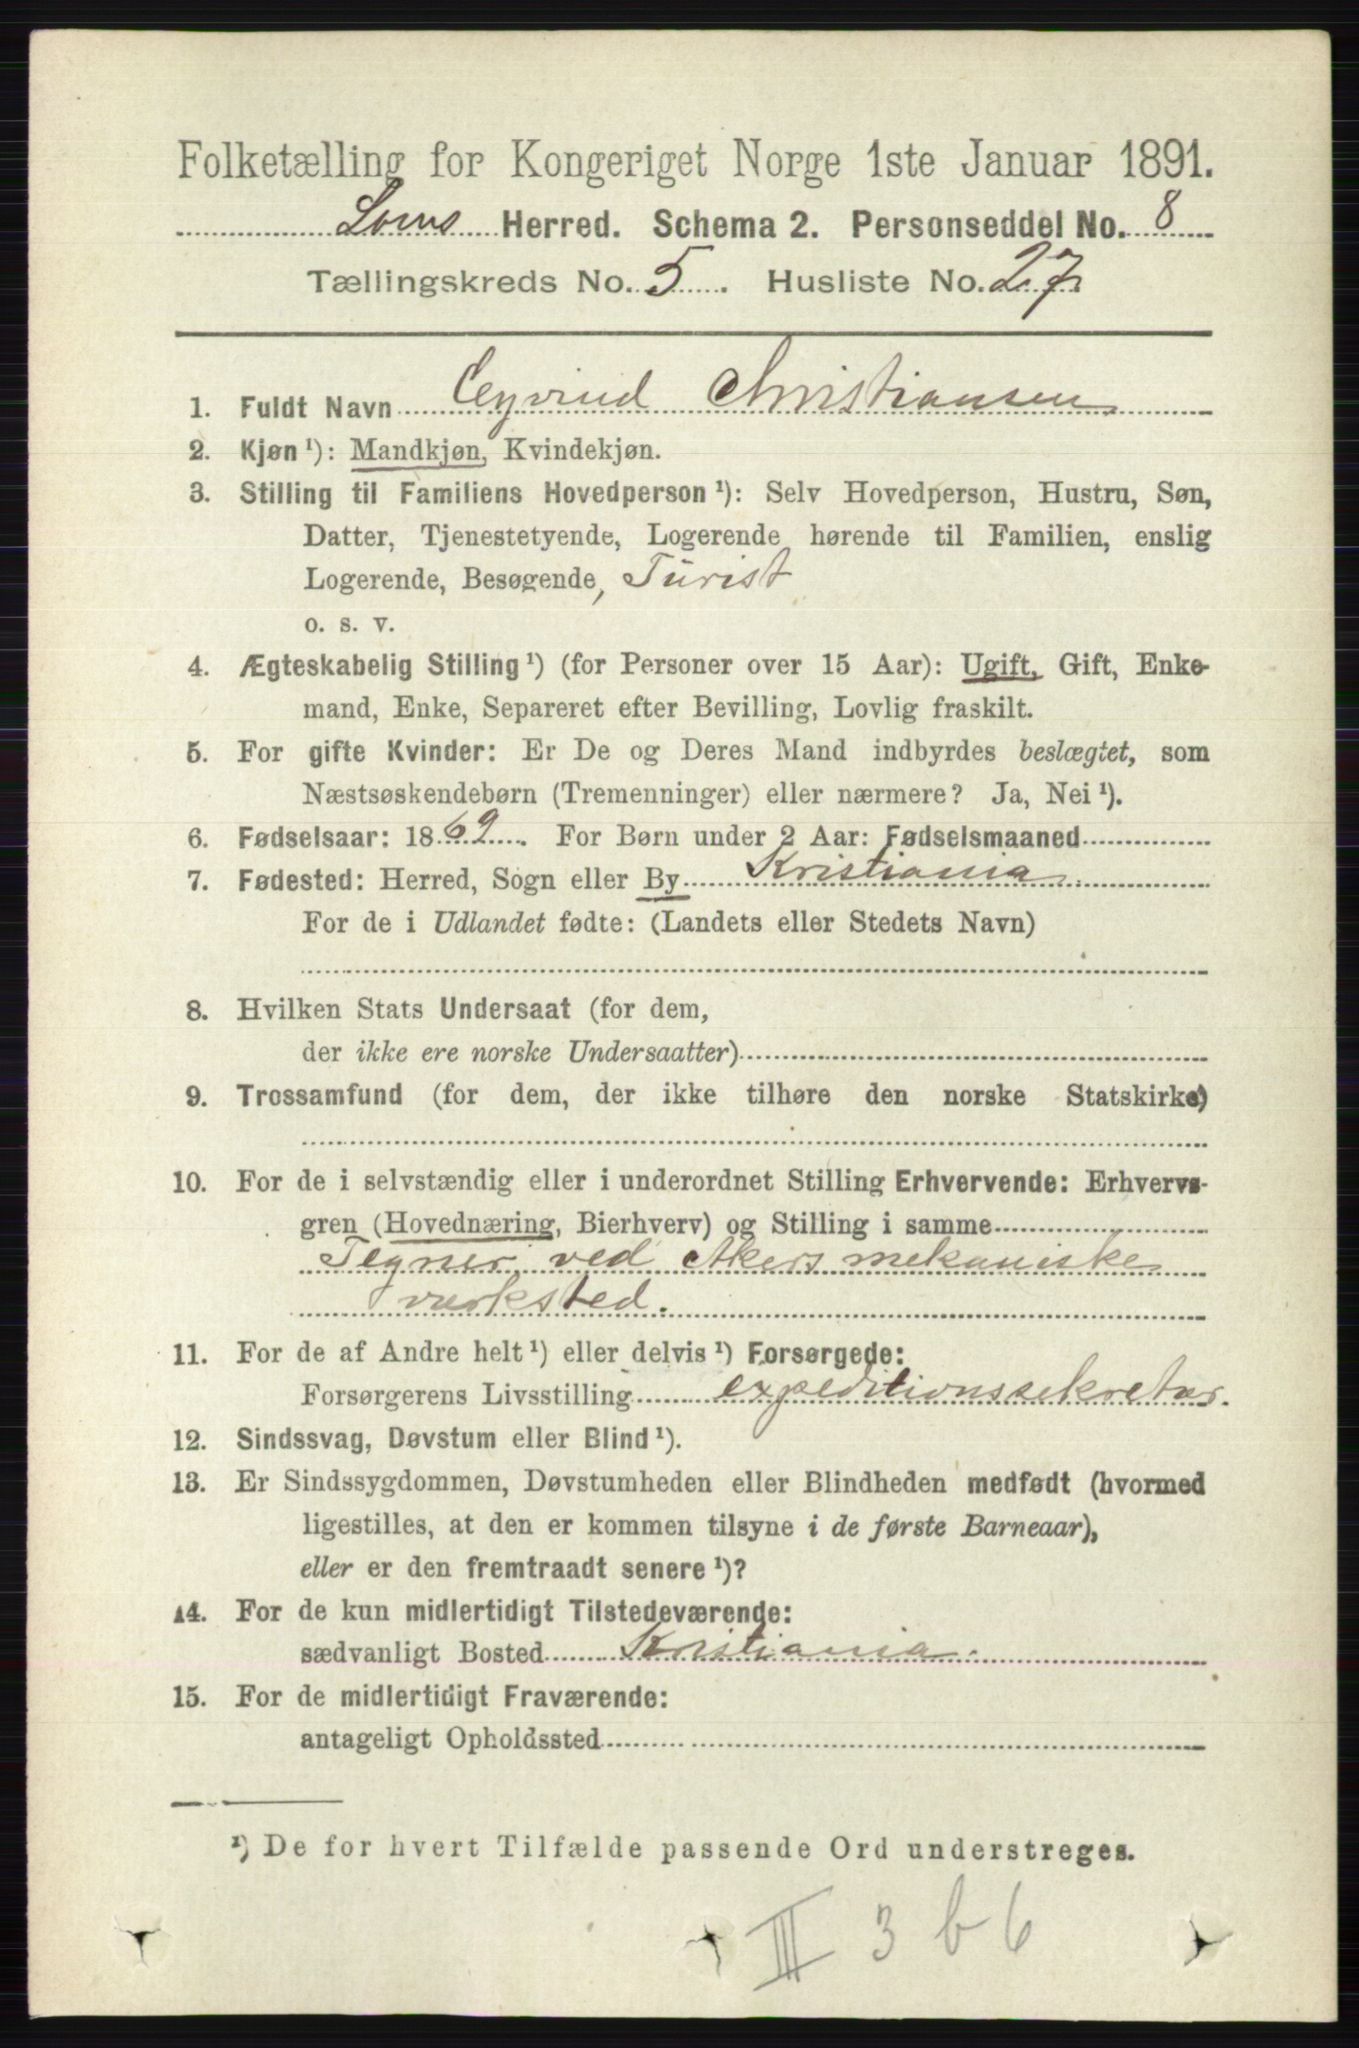 Folketælling for Kongeriget Norge 1ste Januar 1891.
Loms Herred. Schema 2. Personseddel No. 8
Tællingskreds No. 5. Husliste No. 27
1. Fuldt Navn Eyvind Christiansen
2. Kjøn ¹): Mandkjøn, Kvindekjøn.
3. Stilling til Familiens Hovedperson ¹): Selv Hovedperson, Hustru, Søn,
Datter, Tjenestetyende, Logerende hørende til Familien, enslig
Logerende, Besøgende, Turist
o. s. v.
4. Ægteskabelig Stilling ¹) (for Personer over 15 Aar): Ugift, Gift, Enke-
mand, Enke, Separeret efter Bevilling, Lovlig fraskilt.
5. For gifte Kvinder: Er De og Deres Mand indbyrdes beslægtet, som
Næstsøskendebørn (Tremenninger) eller nærmere? Ja, Nei ¹).
6. Fødselsaar: 1869. For Børn under 2 Aar: Fødselsmaaned
7. Fødested: Herred, Sogn eller By Kristiania.
For de i Udlandet fødte: (Landets eller Stedets Navn)
8. Hvilken Stats Undersaat (for dem,
der ikke ere norske Undersaatter)
9. Trossamfund (for dem, der ikke tilhøre den norske Statskirke)
10. For de i selvstændig eller i underordnet Stilling Erhvervende: Erhvervs-
gren (Hovednæring, Bierhverv) og Stilling i samme
Tegner ved Akers mekaniske
værksted.
11. For de af Andre helt ¹) eller delvis ¹) Forsørgede:
Forsørgerens Livsstilling expeditionssekretær.
12. Sindssvag, Døvstum eller Blind ¹).
13. Er Sindssygdommen, Døvstumheden eller Blindheden medfødt (hvormed
ligestilles, at den er kommen tilsyne i de første Barneaar),
eller er den fremtraadt senere ¹)?
14. For de kun midlertidigt Tilstedeværende:
sædvanligt Bosted Kristiania.
15. For de midlertidigt Fraværende:
antageligt Opholdssted
¹) De for hvert Tilfælde passende Ord understreges.
III 3 b 6